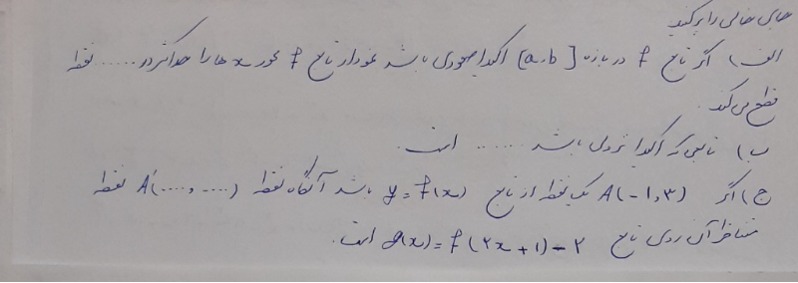 جاهای خالی را پر کنید
الف) اگر تابع f در بازه [a,b] اکیدا صعودی باشد نمودار تابع f محور x ها را حداکثر در ...... نقطه
قطع می کند.
ب) تابعی که اکیدا نزولی باشد ...... است.
ج) اگر A(-1,3) یک نقطه از تابع y=f(x) باشد آنگاه نقطه A'(....,....) نقطه
متناظر آن روی تابع g(x)=f(2x+1)-2 است.